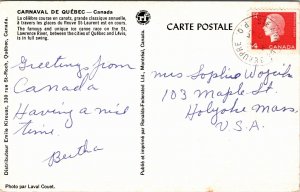 CARNAVAL DE QUÉBEC — Canada
La célèbre course en canots, grande classique annuelle,
à travers les glaces du fleuve St-Laurent est en cours.
The famous and unique ice canoe race on the St.
Lawrence River, between the cities of Québec and Lévis,
is in full swing.
Greetings from
Canada
Having a nice
time.
Bertha
Photo par Laval Couet.
Distributeur Emile Kirouac, 330 rue St-Roch, Québec, Canada.
Publié et imprimé par Montréal, Canada.
CARTE POSTALE
4
Mrs Sophie
103 Maple St.
Holyoke Mass.
U.S.A.